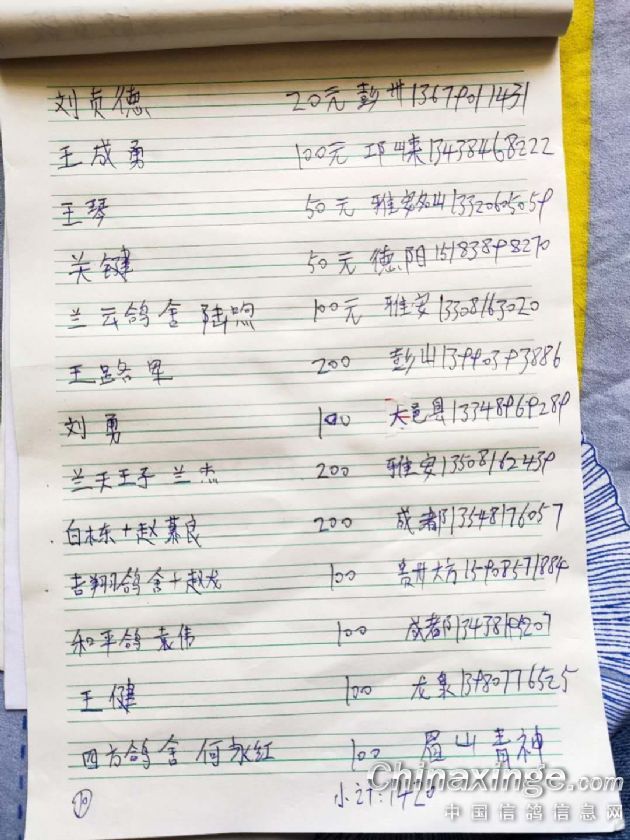 刘贞德 20元 彭州13679011431
王成勇 100元 邛崃13438468222
王琴 50元 雅安名山13320605059
关键 50元 德阳15183898270
兰云鸽舍 陆 100元 雅安
王路军 200 彭山13990393886
刘勇 100 大邑县13348969289
兰天王子 兰杰 200 雅安13508162439
白林东+赵慕良 200 成都13548176057
吉翔鸽舍+赵龙 100 贵州大方15908571884
和平鸽 袁伟 100 成都
王健 100 龙泉13980776525
四方鸽舍 何永红 100 眉山青神
⑩ 小计:1420
Chinaxinge.com
中国信鸽信息网